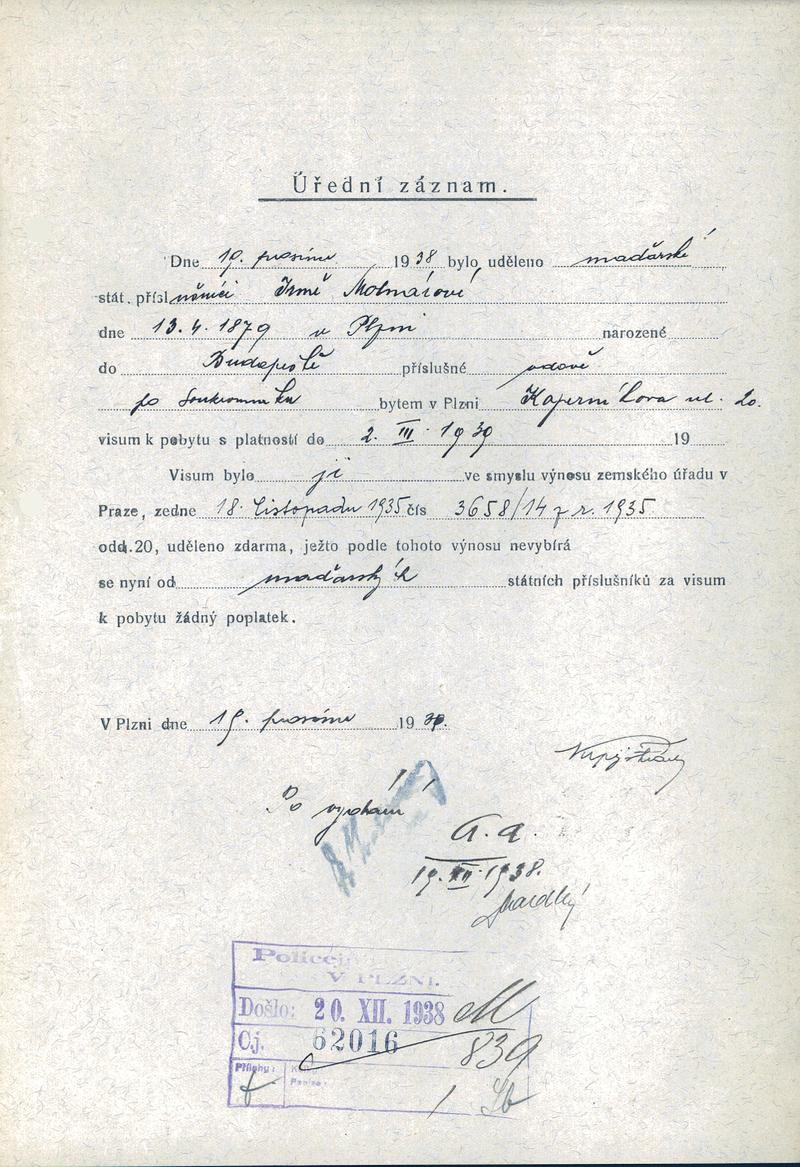 Úřední záznam.
Dne 19. prosince 1938 bylo uděleno maďarské
stát. přísl ušnici Irmě Molnárové,
dne 13. 4. 1879 v Plzni narozené
do Budapeště příslušné vdově
po soukromníku bytem v Plzni Koperníkova ul. 20.
visum k pobytu s platností do 2. III. 1939 19
Visum bylo jí ve smyslu výnosu zemského úřadu v
Praze, zedne 18. listopadu 1935 čís 3658/14 z r. 1935
odd.20, uděleno zdarma, ježto podle tohoto výnosu nevybírá
se nyní od maďarských státních příslušníků za visum
k pobytu žádný poplatek.
V Plzni dne 19. prosince 1938.
Po vypravení
a. a.
19. XII. 1938.
Policej
V PLZNI.
Došlo: 20. XII. 1938 M
Č.j. 62016 839
Přílohy:
1